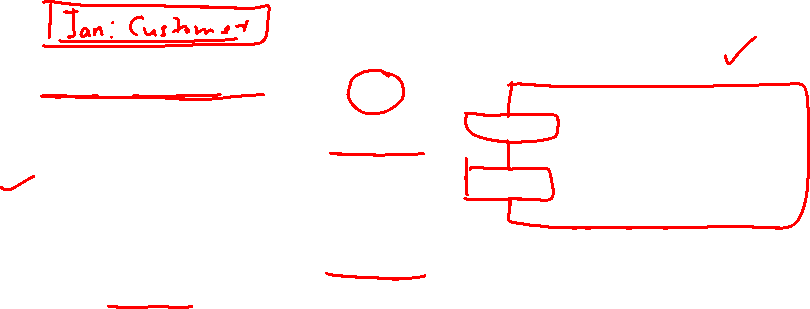 Jan: Customer